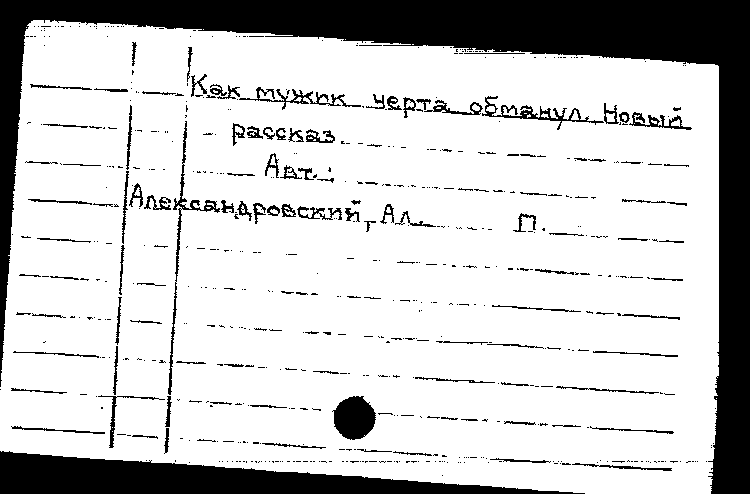 Как мужик черта обманул. Новый
рассказ
Авт.:
Александровский, Ал. П.